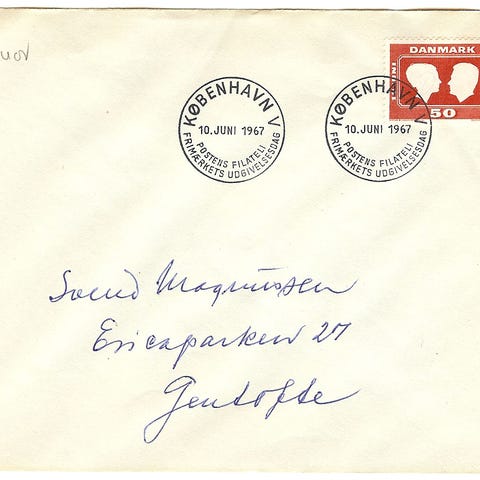 DANMARK
JUNI
50
KØBENHAVN V
10. JUNI 1967
POSTENS FILATELI
FRIMÆRKETS UDGIVELSESDAG
KØBENHAVN V
10. JUNI 1967
POSTENS FILATELI
FRIMÆRKETS UDGIVELSESDAG
Svend Magnussen
Ericaparken 27
Gentofte